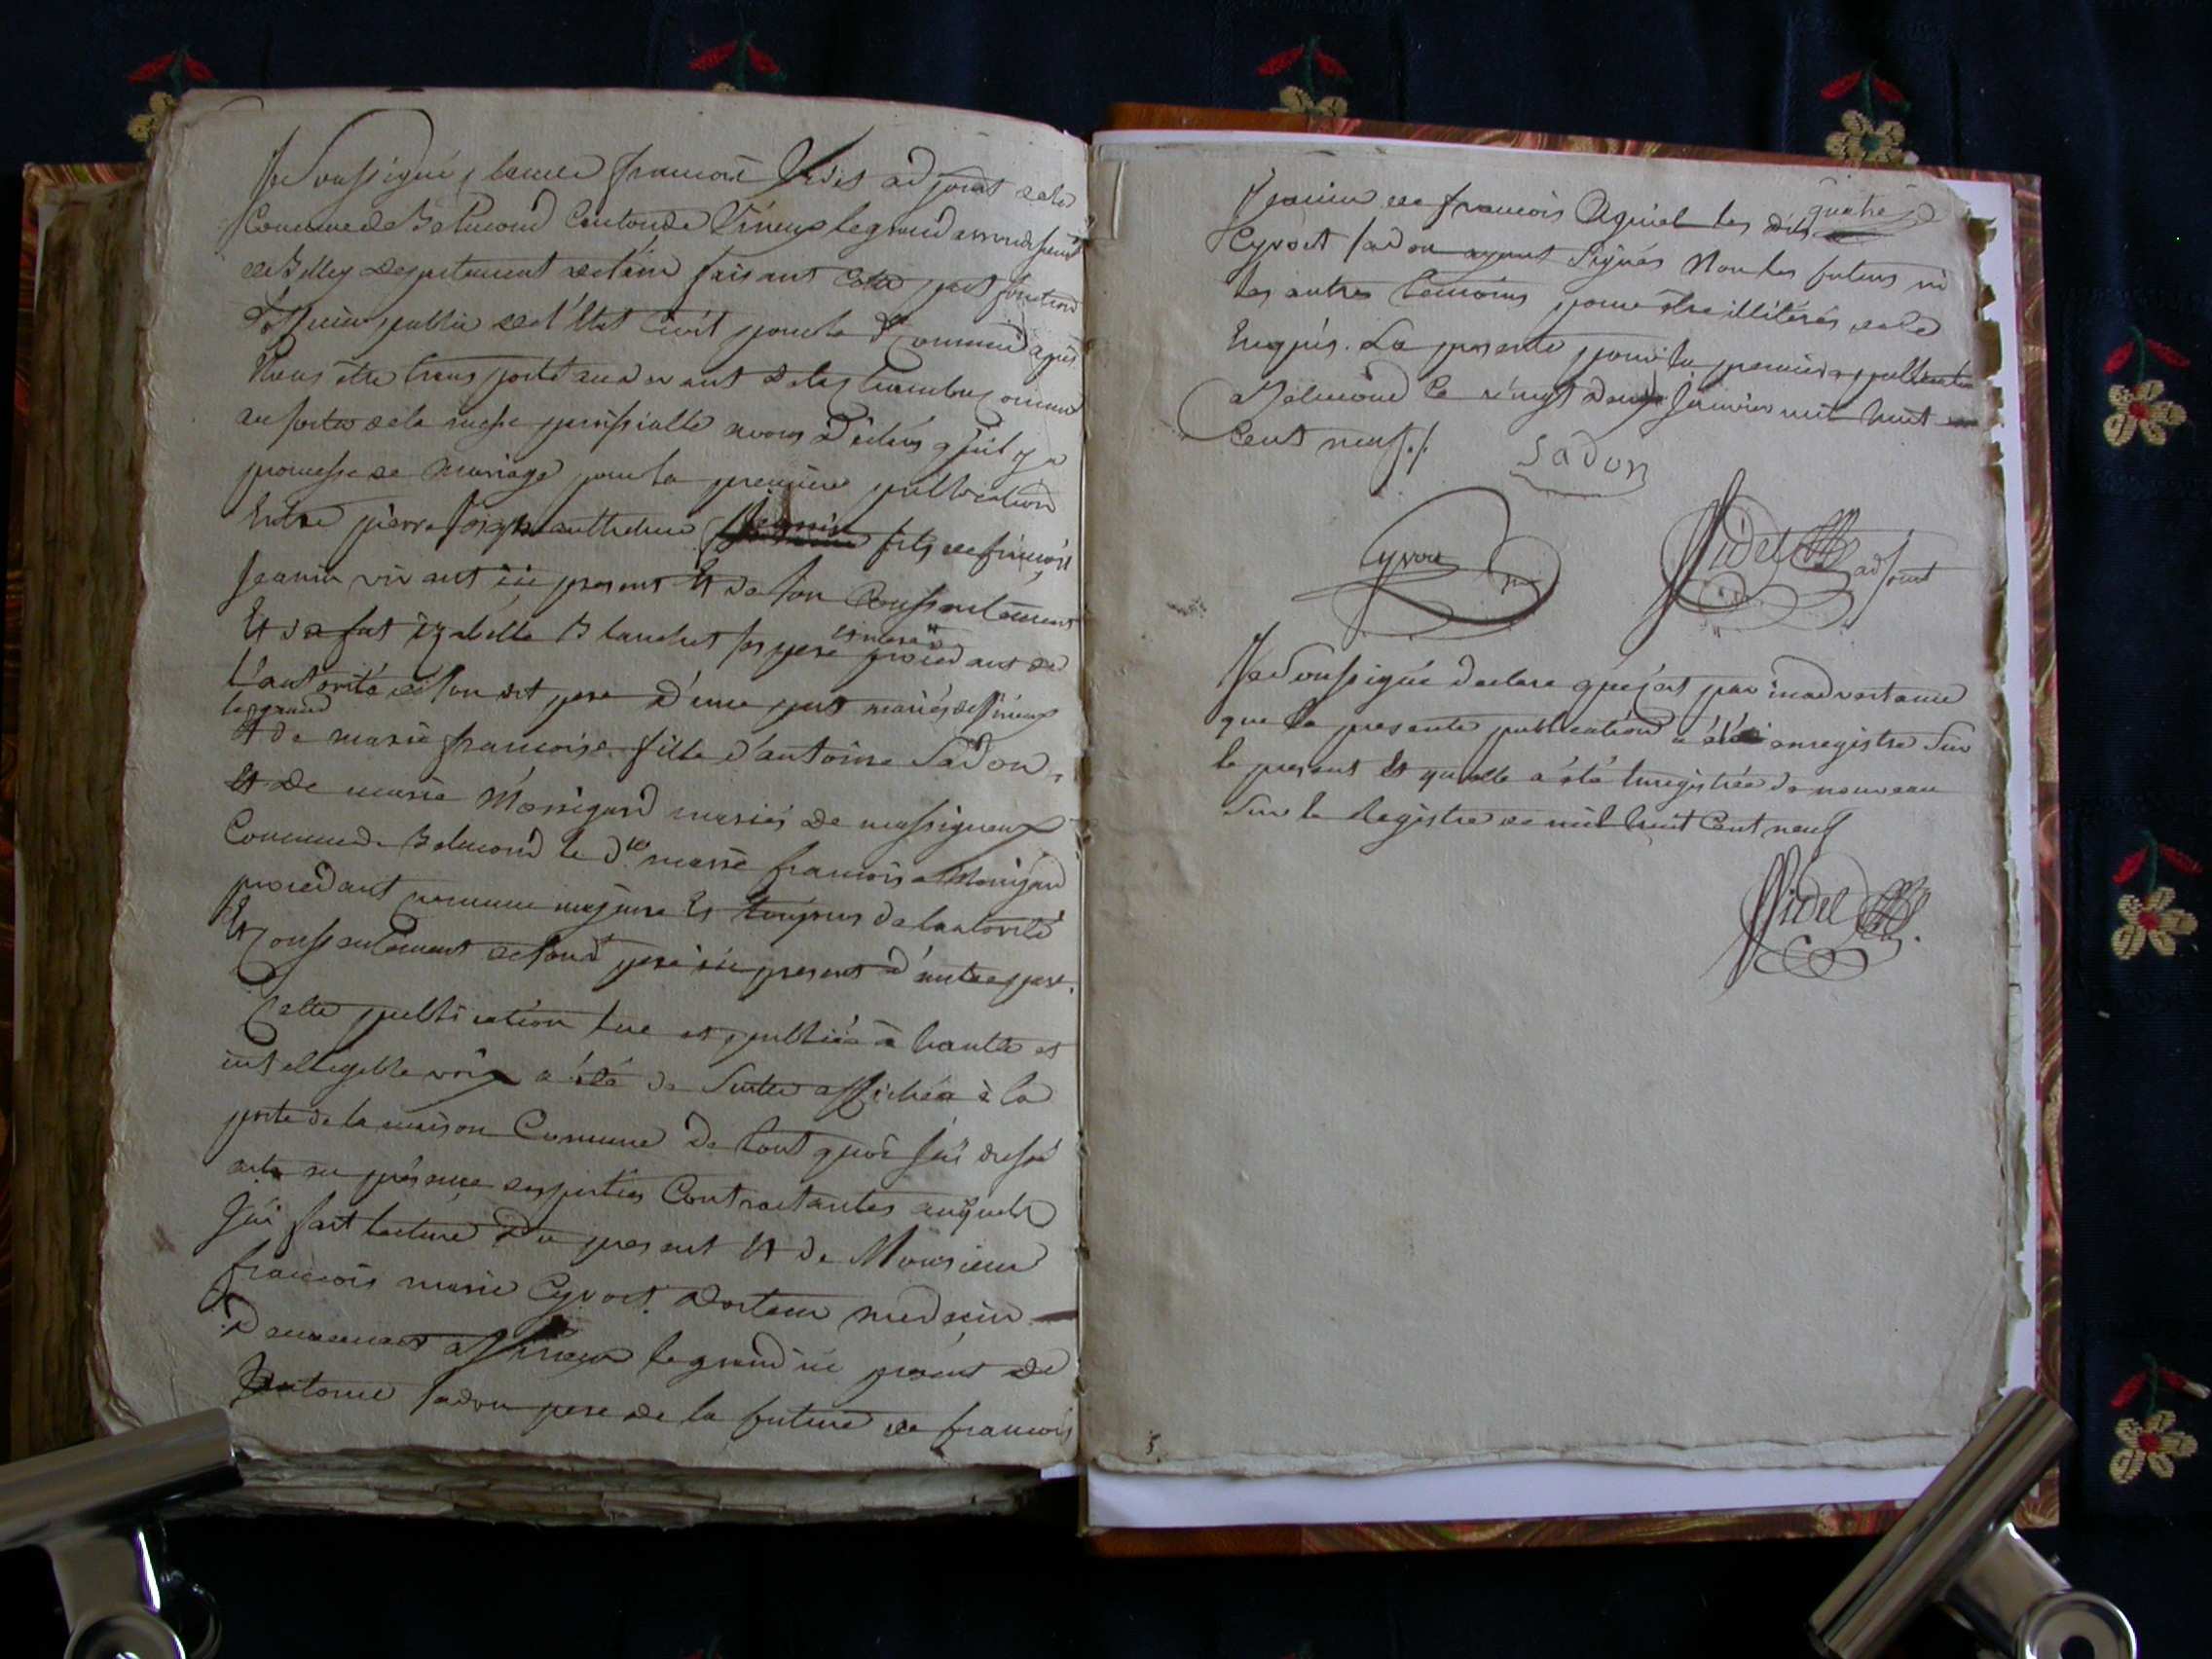 Je soussigné claude francois Videl adjoint de la
Commune de Belmond Canton de Virieux le grand arrondisment
de Belley departement de l'ain faisant cette part fonction
d'officier public de l'Etat Civil pour la dte Commune apres
Nous être transporté au devant de la chambre commune
au sortir de la messe parissialle avons déclaré quil y a
promesse de mariage pour la premiere publication
Entre pierre joseph anthelme Jeanin fils de francois
Jeanin vivant ici present Et de son Conssentement
Et de fut izabelle Blanchet ses pere et mere procedant de
l'autorité de son dit pere d'une part mariés de Virieux
le grand
Et de marie francoise fille d'antoine Sadon
Et de marie Monigard mariés de massigneux
Commune de Belmond la dte marie francoise
procedant comme majeure Et toujours de lautorité
Et Conssentement de son dt pere ici present d'autre part.
Cette publication lue et publiée à haute et
intelligible voix a été de suitte affichée à la
porte de la maison Comune de tout quoi j'ai dressé
acte en présence des parties Contractantes auquels
J'ai fait lecture du present Et de Monsieur
francois marie Cyvoct docteur medecin
demeurant a Virieux le grand ici présent de
antoine sadon pere de la future de francois
Jeanin de francois les dits quatre
Cyvoct sadon ayant Signés Non les futurs ni
les autres temoins pour être illitérés de ce
Enquis. La presente pour la premiere publication
a Belmond le vingt deux janvier mil huit
Cent neuf./.
Sadon
Cyvoct
Videl adjoint
Je Soussigné declare que c'est par inadvertance
que la presente publication a été enregistre Sur
le present Et qu'elle a été Enregistrée de nouveau
Sur le Registre de mil huit Cent neuf
Videl